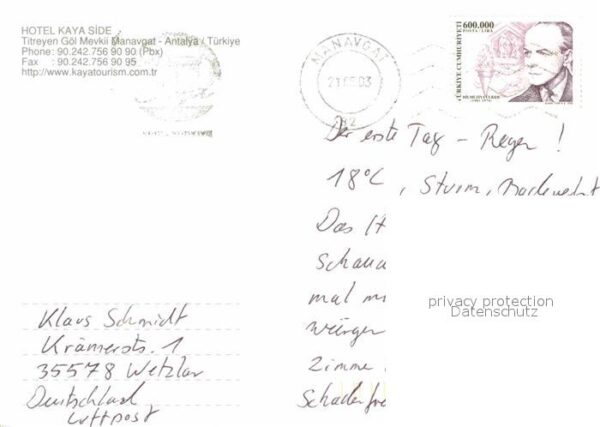 HOTEL KAYA SİDE
Titreyen Göl Mevkii Manavgat - Antalya / Türkiye
Phone: 90.242.756 90 90 (Pbx)
Fax : 90.242.756 90 95
http://www.kayatourism.com.tr
MANAVGAT
600.000
POSTA LİRA
TÜRKİYE CUMHURİYETİ
Der erste Tag – Regen !
18°C, Sturm,
Das H
Schau
mal
würger
Zimme
Schadenfre
privacy protection
Datenschutz
Klaus Schmidt
Krämerstr. 1
35578 Wetzlar
Deutschland
Luftpost